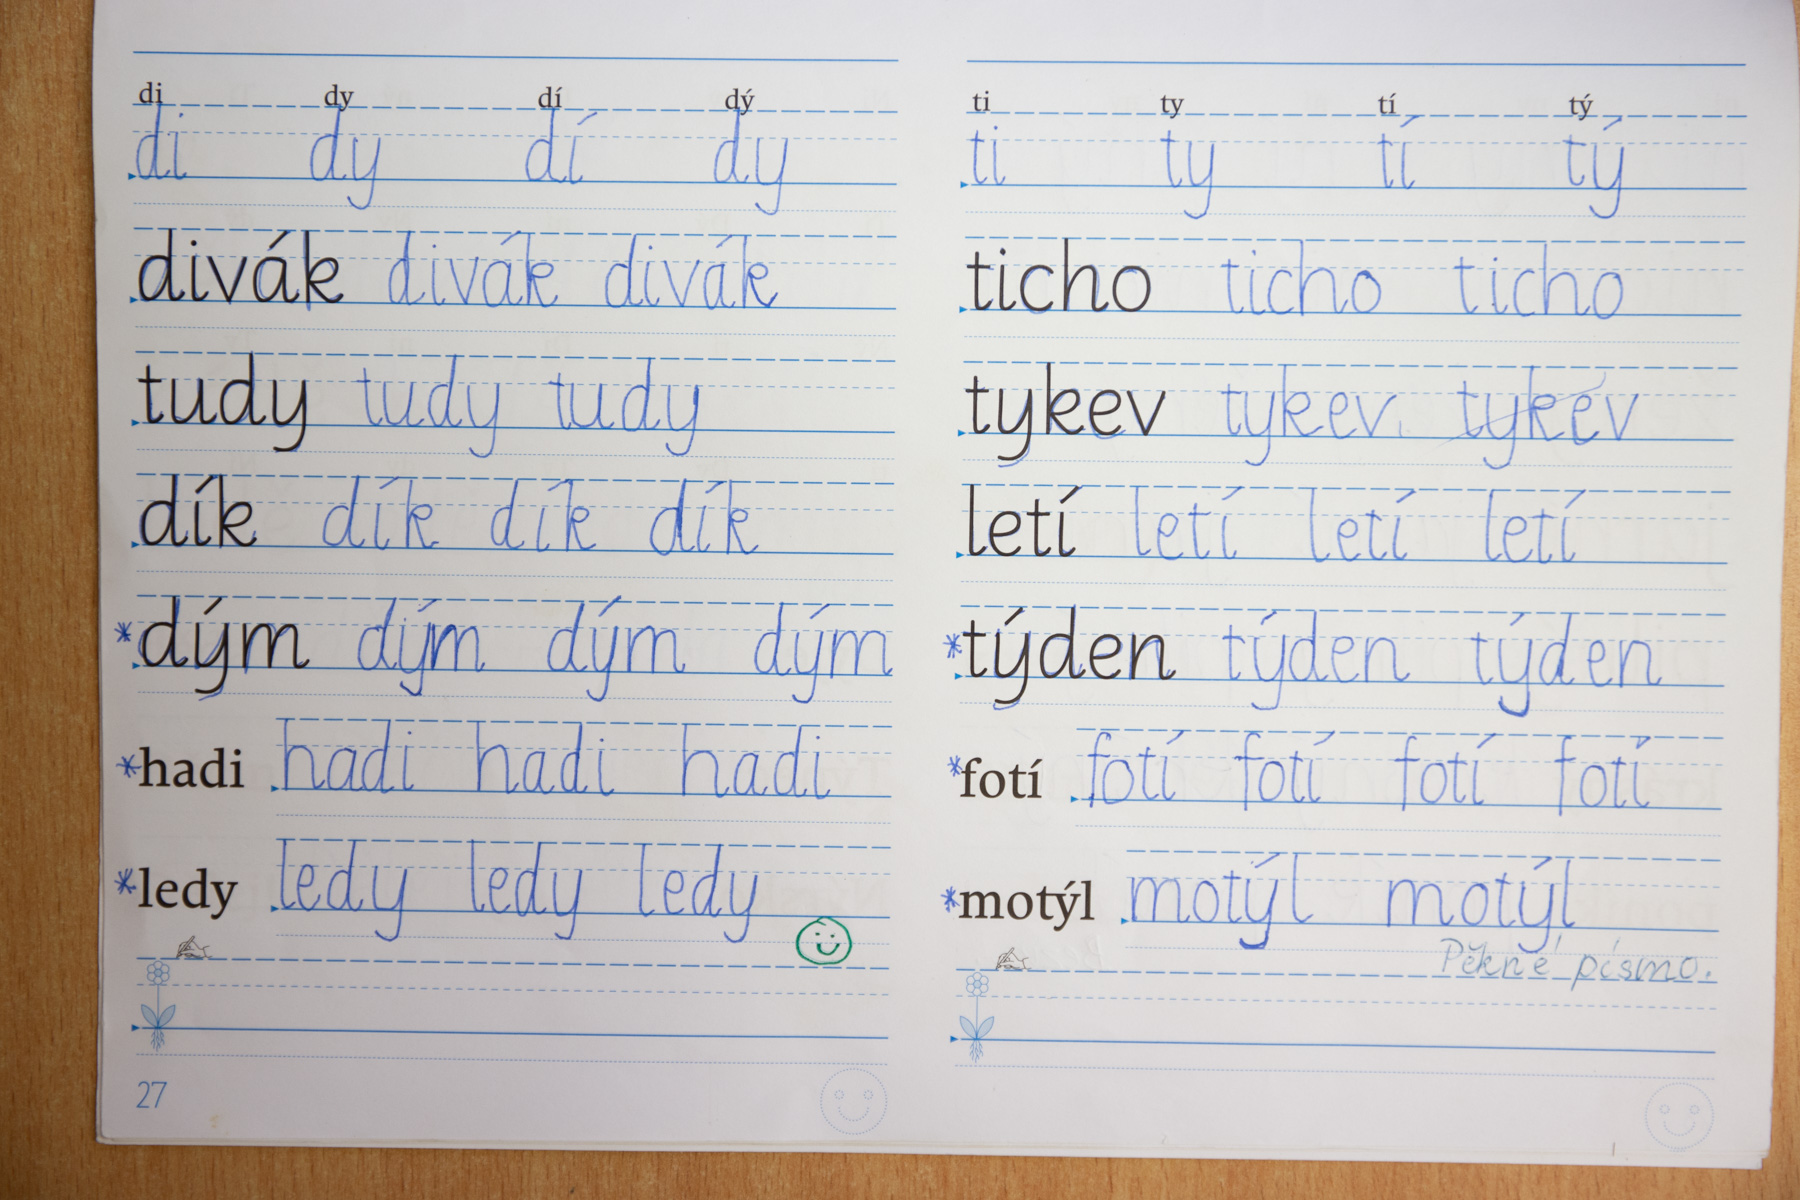 di dy dí dý
di dy dí dy
divák divák divák
tudy tudy tudy
dík dík dík dík
*dým dým dým dým
*hadi hadi hadi hadi
*ledy ledy ledy ledy
27
ti ty tí tý
ti ty tí tý
ticho ticho ticho
tykev tykev tykev
letí letí letí letí
*týden týden týden
*fotí fotí fotí fotí fotí
*motýl motýl motýl
Pěkné písmo.